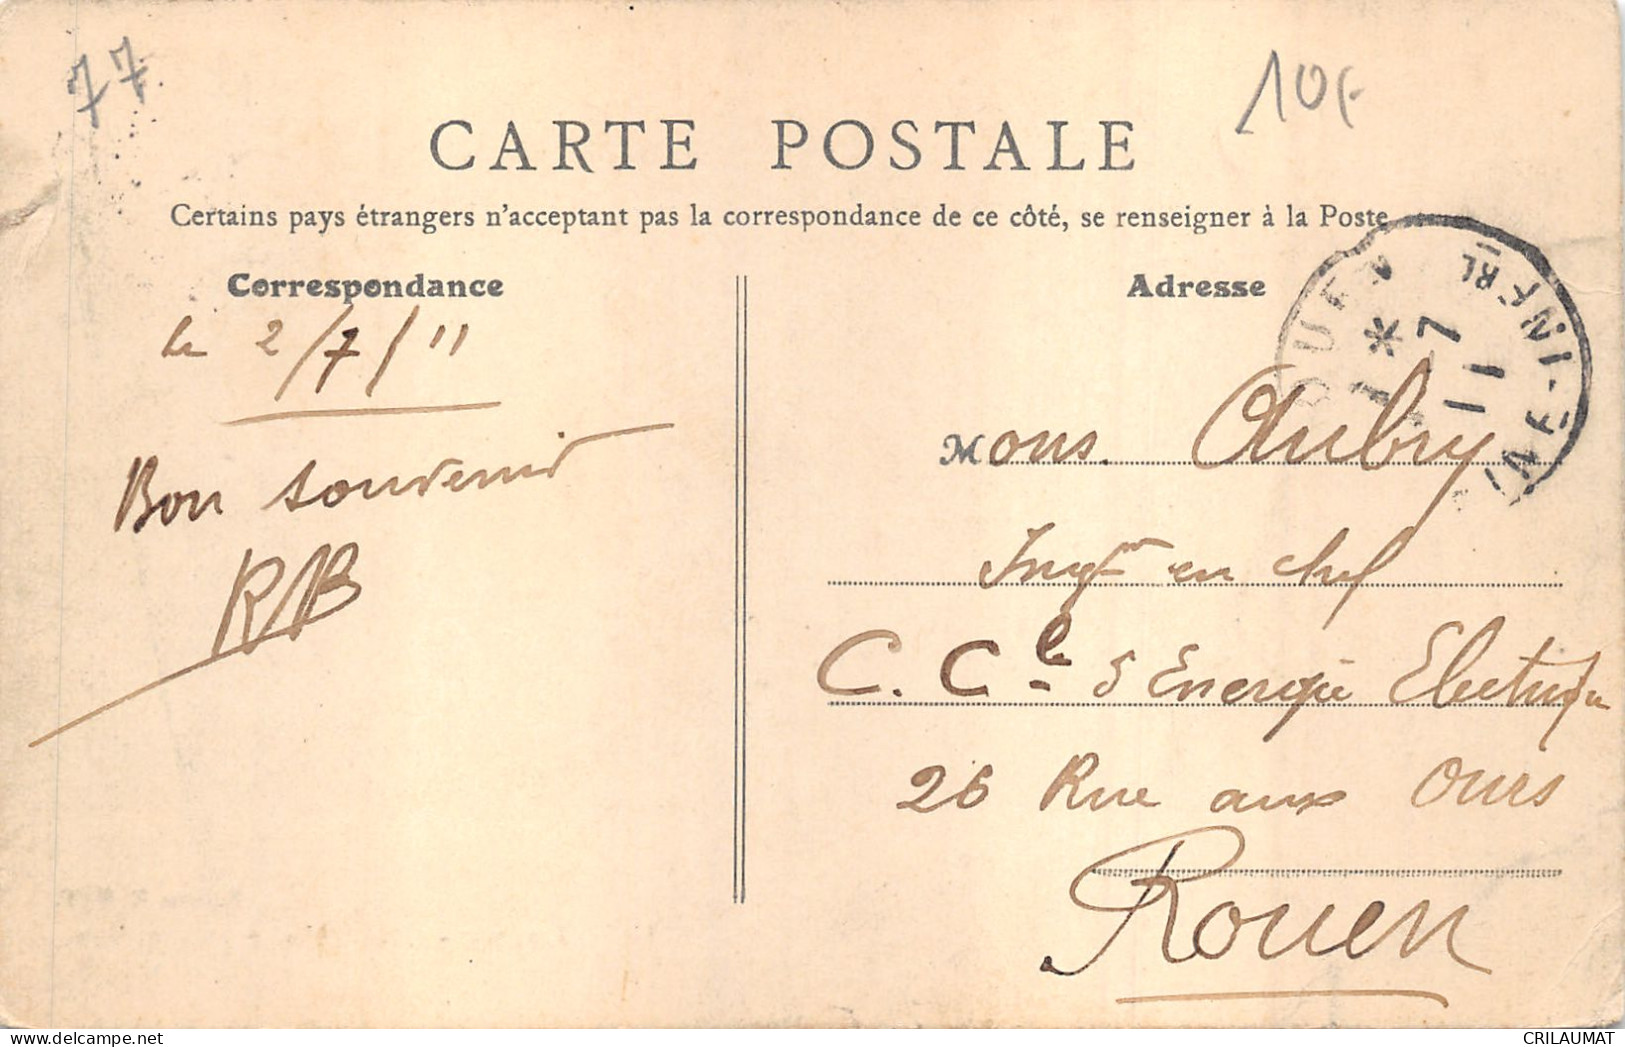 77
10F
CARTE POSTALE
Certains pays étrangers n'acceptant pas la correspondance de ce côté, se renseigner à la Poste
Correspondance
le 2/7/11
Bon souvenir
RB
Adresse
Mons. Aubry
Ingr en chef
C. Cle d'Energie Electrique
26 Rue aux Ours
Rouen
ROUEN
* 7
11
INE-INFRE
CRILAUMAT